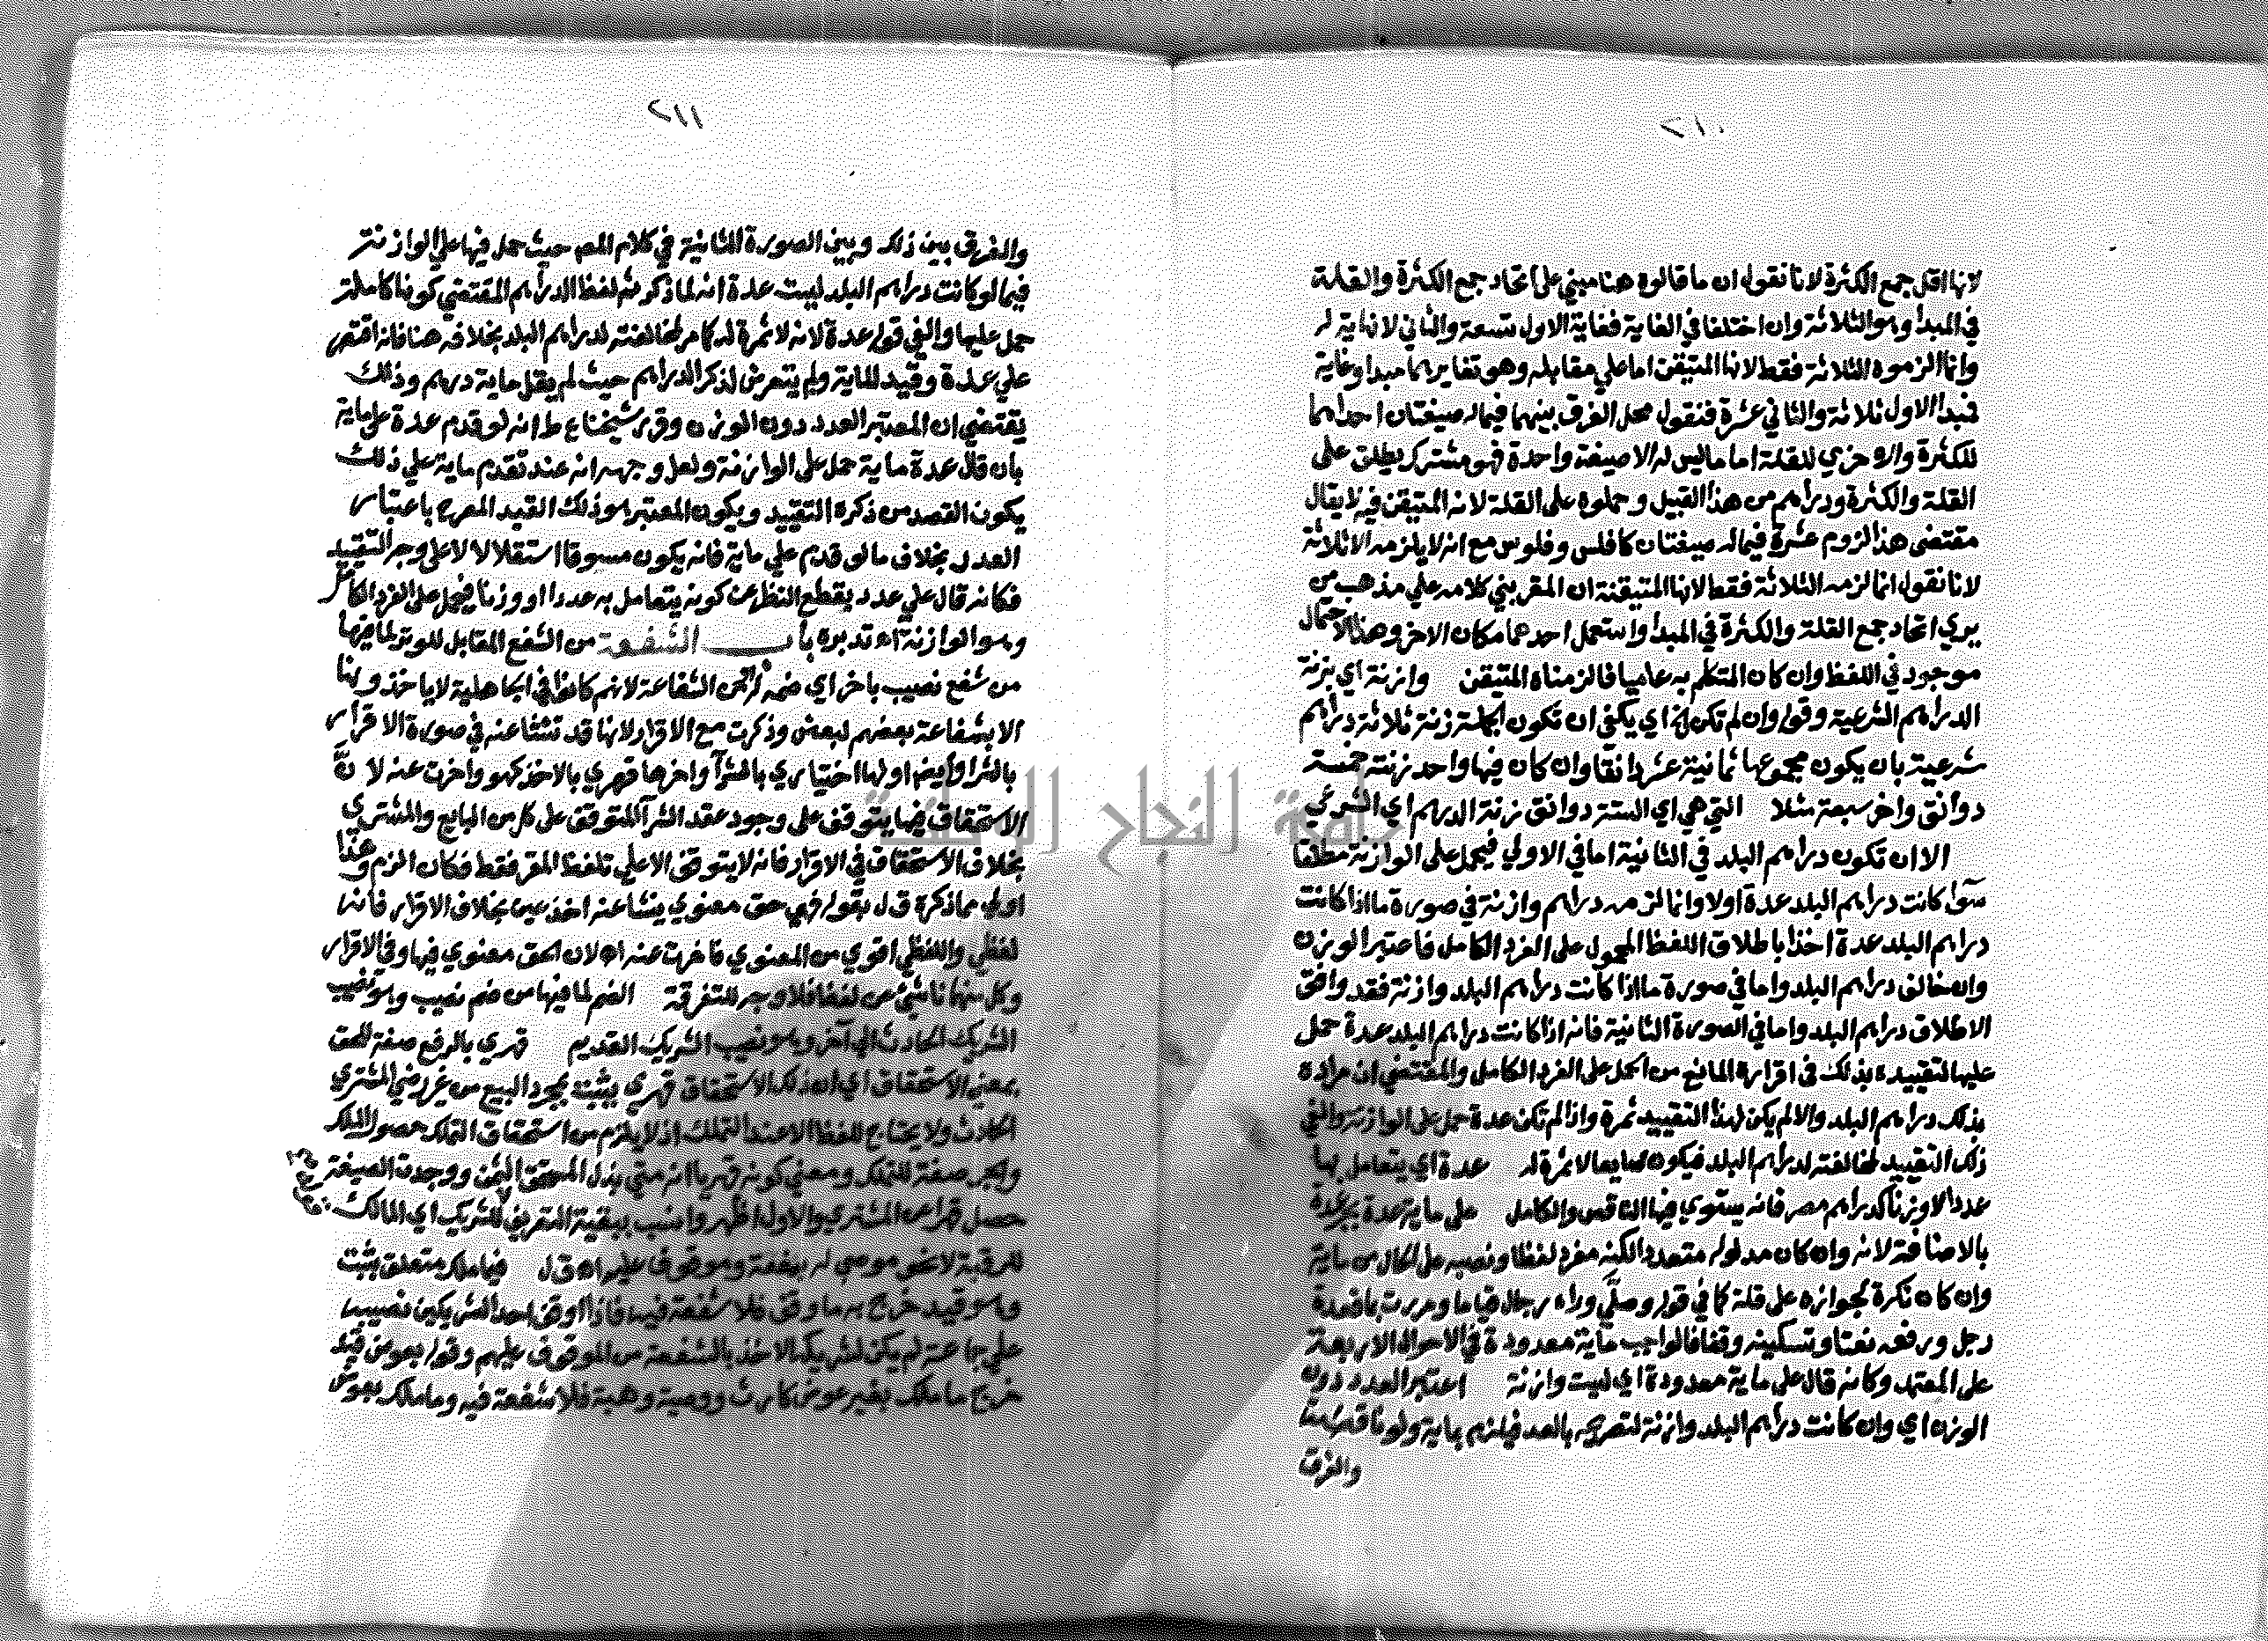 ٢١٠
لانها اقل جمع الكثرة لانا نقول ان ما قالوه هنا مبني على اتحاد جمع الكثرة والقلة
في المبدأ وهو الثلاثة وان اختلفا في الغاية فغاية الاول تسعة والثاني لا نهاية له
وانما الزموه الثلاثة فقط لانها المتيقن اما على مقابله وهو تغايرهما مبدا وغاية
فمبدا الاول ثلاثة والثاني عشرة فنقول محل الفرق بينهما فيما له صيغتان احداهما
للكثرة والاخري للقلة اما ما ليس له الا صيغة واحدة فهو مشترك يطلق على
القلة والكثرة ودراهم من هذا القبيل وحملوه على القلة لانه المتيقن فيه لا يقال
مقتضى هذا لزوم عشرة فيما له صيغتان كافلس وفلوس مع انه لا يلزمه الا ثلاثة
لانا نقول انما لزمه الثلاثة فقط لانها المتيقنة ان المقر بني كلامه علي مذهب من
يري اتحاد جمع القلة والكثرة في المبدأ واستعمل احدهما مكان الاخر وهذا الاحتمال
موجود في اللفظ وان كان المتكلم به عاميا فالزمناه المتيقن وازنة اي بزنة
الدراهم الشرعية وقوله وان لم تكن الخ اي يكفي ان تكون الجملة زنة ثلاثة دراهم
شرعية بان يكون مجموعها ثمانية عشر دانقا وان كان فيها واحد زنته خمسة
دوانق واخر سبعة مثلا التي هي اي الستة دوانق زنة الدرهم اي الشرعي
الا ان تكون دراهم البلد في الثانية اما في الاولي فيحمل على الوازنة مطلقا
سوا كانت دراهم البلد عدة اولا وانما لزمه دراهم وازنة في صورة ما اذا كانت
دراهم البلد عدة اخذا باطلاق اللفظ المحمول على الفرد الكامل فاعتبر الوزن
وان خالف دراهم البلد واما في صورة ما اذا كانت دراهم البلد وازنة فقد وافق
الاطلاق دراهم البلد واما في الصورة الثانية فانه اذا كانت دراهم البلد عدة حمل
عليها لتقييده بذلك في اقراره المانع من الحمل على الفرد الكامل والمقتضي ان مراده
بذلك دراهم البلد والا لم يكن لهذا التقييد ثمرة واذا لم تكن عدة حمل على الوازنة والغي
ذلك التقييد لمخالفته لدراهم البلد فيكون ضايعا لا ثمرة له عدة اي يتعامل بها
عددا لا وزنا كدراهم مصر فانه يستوي فيها الناقص والكامل على ماية عدة بجر عدة
بالاضافة لانه وان كان مدلوله متعددا لكنه مفرد لفظا ونصبه على الحال من ماية
وان كان نكرة لجوازه على قلة كما في قوله وصلى وراءه رجال قياما ومررت بماء قعدة
رجل ورفعه نعتا وتسكينه وقفا فالواجب ماية معدودة في الاحوال الاربعة
على المعتمد وكانه قال على ماية معدودة اي ليست وازنة اعتبر العدد دون
الوزن اي وان كانت دراهم البلد وازنة لتصريحه بالعد فيلزم بماية ولو ناقصة
والفرق
٢١١
والفرق بين ذلك وبين الصورة الثانية في كلام المص حيث حمل فيها علي الوازنة
فيما لو كانت دراهم البلد ليست عدة انه لما ذكر ثم لفظ الدراهم المقتضي كونها كاملة
حمل عليها والغي قوله عدة لانه لا ثمرة له كما مر لمخالفته لدراهم البلد بخلافه هنا فانه اقتصر
علي عدة وقيد للماية ولم يتعرض لذكر الدراهم حيث لم يقل ماية درهم وذلك
يقتضي ان المعتبر العدد دون الوزن وقرر شيخنا ع ط انه لو قدم عدة على ماية
بان قال عدة ماية حمل على الوازنة ولعل وجهه انه عند تقدم ماية علي ذلك
يكون القصد من ذكره التقييد ويكون المعتبر هو ذلك القيد المصرح باعتبار
العدد بخلاف ما لو قدم علي ماية فانه يكون مسوقا استقلالا لا على وجه التقييد
فكانه قال علي عدد يقطع النظر عن كونه يتعامل به عددا او وزنا فيحمل على الفرد الكامل
وهو الوازنة اه تدبره باب الشفعة من الشفع المقابل للوتر لما فيها
من شفع نصيب باخر اي ضمه له او من الشفاعة لانهم كانوا في الجاهلية لا ياخذونها
الا بشفاعة بعضهم لبعض وذكرت مع الاقرار لانها قد تنشا عنه في صورة الاقرار
بالشرا وايضا اولها اختياري بالشرآ واخرها قهري بالاخذ كهو واخرت عنه لانَّ
الاستحقاق فيها يتوقف على وجود عقد الشرآ المتوقف على كل من البايع والمشتري
بخلاف الاستحقاق في الاقرار فانه لا يتوقف الا علي تلفظ المقر فقط فكان الزم وهذا
اولي مما ذكره ق ل بقوله فهي حق معنوي ينشا عنه اخذ عين بخلاف الاقرار فانه
لفظي واللفظي اقوي من المعنوي فاخرت عنه اه لان الحق معنوي فيها وفي الاقرار
وكل منهما ناشئ عن لفظ فلا وجه للتفرقة الضم لما فيها من ضم نصيب وهو نصيب
الشريك الحادث الى آخر وهو نصيب الشريك القديم قهري بالرفع صفة للحق
بمعني الاستحقاق اي ان ذلك الاستحقاق قهري يثبت بمجرد البيع من غير رضي المشتري
الحادث ولا يحتاج للفظ الا عند التملك اذ لا يلزم من استحقاق التملك حصول الملك
والجر صفة للتملك ومعني كونه قهريا انه متى بذل المستحق الثمن ووجدت الصيغة
حصل قهرا عن المشتري والاول اظهر وانسب ببقية التعريف للشريك اي المالك
للرقبة لا نحو موصي له بمنفعة وموقوف عليه اه ق ل فيما ملك متعلق بيثبت
وهو قيد خرج به ما وقف فلا شفعة فيه فاذا اوقف احد الشريكين نصيبه
علي جماعة لم يكن لشريكه الاخذ بالشفعة من الموقوف عليهم وقوله بعوض قيد
خرج ما ملك بغير عوض كارث ووصية وهبة فلا شفعة فيه وما ملك بعوض
جامعة النجاح الوطنية